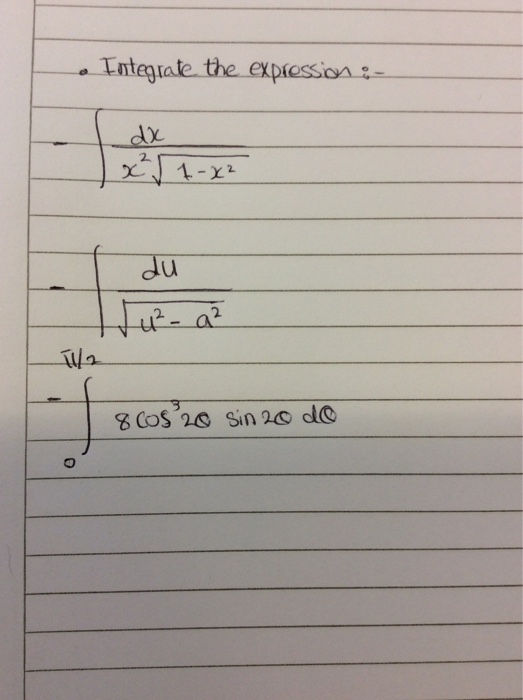 • Integrate the expression :-
- ∫ dx / x²√1-x²
- ∫ du / √u² - a²
- ∫₀^π/2 8 cos³2θ sin 2θ dθ